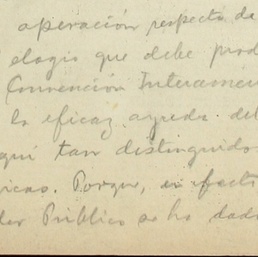 operación respecto de
elogio que debe prod
Convención Interamer
la eficaz ayuda del
quí tan distinguido
icas. Porque, en efect
der Público se ha dado